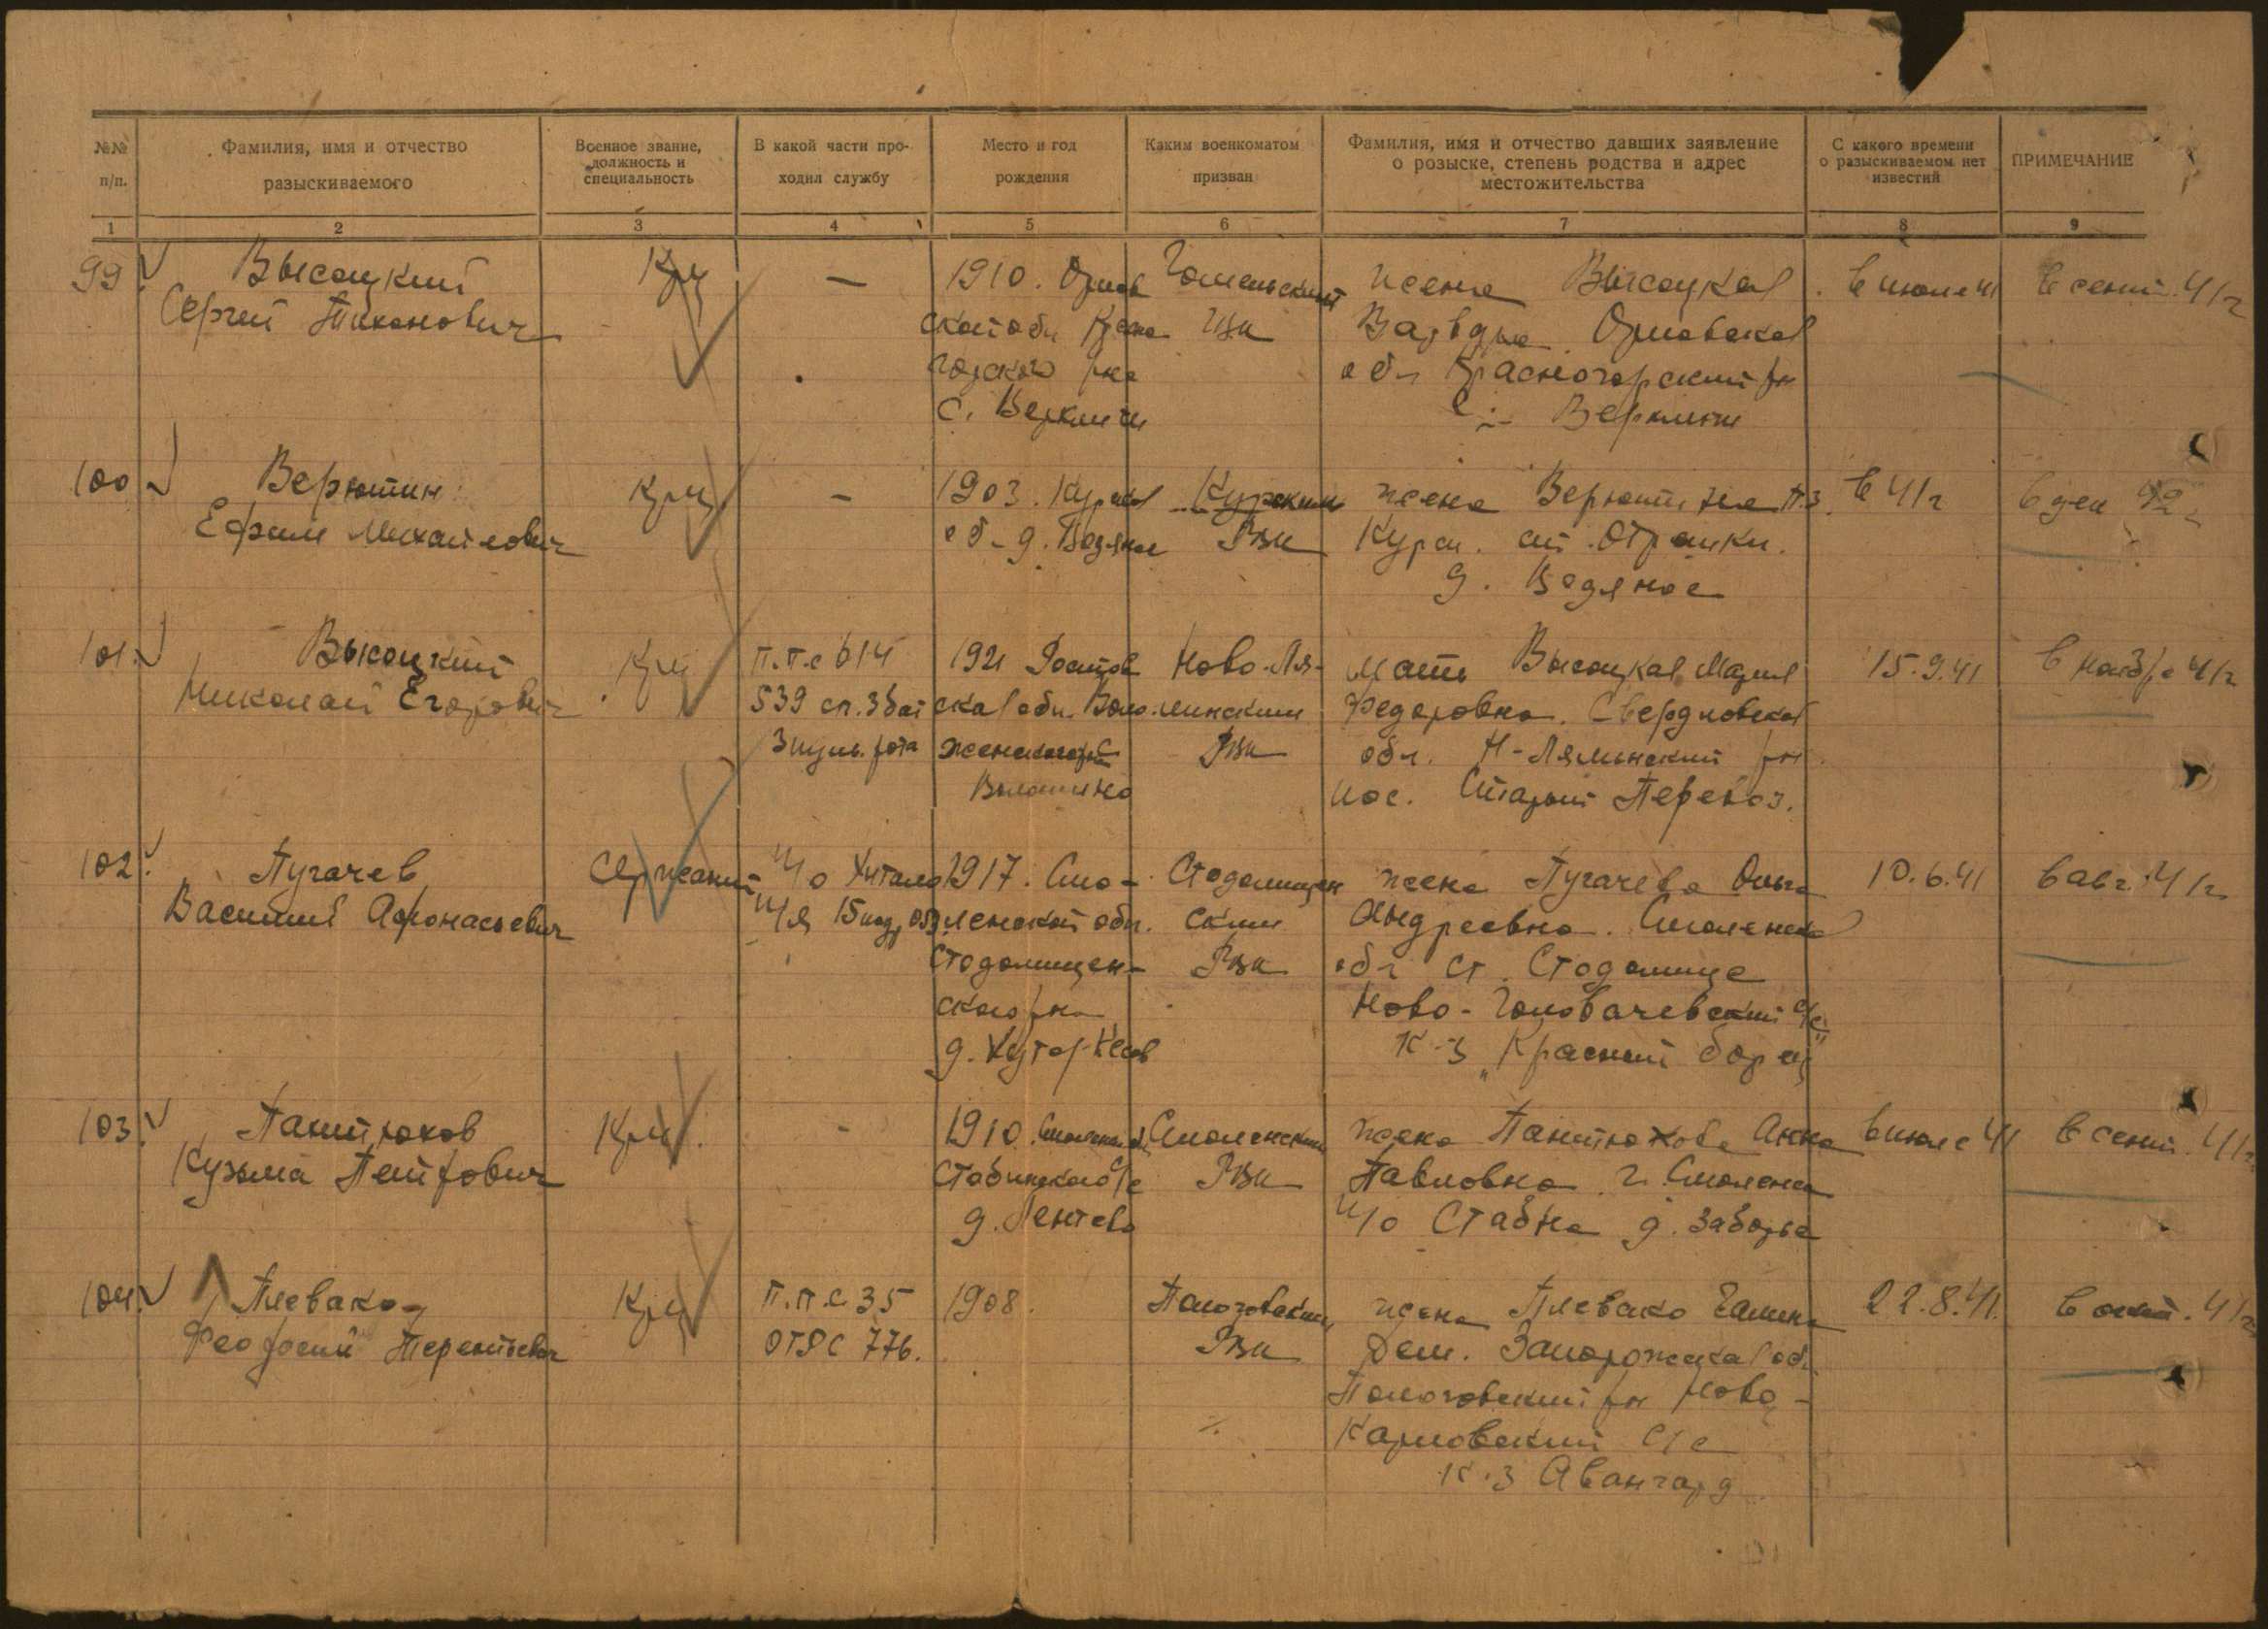 №№ п/п.
Фамилия, имя и отчество разыскиваемого
Военное звание, должность и специальность
В какой части проходил службу
Место и год рождения
Каким военкоматом призван
Фамилия, имя и отчество давших заявление о розыске, степень родства и адрес местожительства
С какого времени о разыскиваемом нет известий
ПРИМЕЧАНИЕ
1 2 3 4 5 6 7 8 9
99.
Высоцкий
Сергей Тихонович
Кр-ц
—
1910. Орлов
ская обл Красно
горского р-на
с.
Гомельский
жена Высоцкая
Орловская
обл Красногорский рн
с.
в июле 41
в сент. 41г
100
Верютин
Ефим Михайлович
Кр-ц
—
1903. Курская
об- д. Водяное
Курским
РВК
жена Верютина П.З.
Курск. ст. Отрешки.
д. Водяное
в 41г
в дек 42г
101.
Высоцкий
Николай Егорович
Кр-ц
п.п.с 614
539 сп. 3 бат
3 пуль. рота
1921 Ростов
ская обл. Воло
Волошино
Ново-Ля-
линским
РВК
мать Высоцкая Мария
Федоровна. Свердловская
обл. Н-Лялинский рн
пос. Старый Перевоз.
15.9.41
в ноябре 41г
102.
Пугачев
Василий Афонасьевич
Сержант
п/о
п/я 15
1917. Смо-
ленской обл.
Стодолищен-
ского рна
д. Хутор
Стодолищен
ским
РВК
жена Пугачева Ольга
Андреевна. Смоленская
обл ст. Стодолище
Ново-Головачевский с/с
к-з „Красный борец"
10.6.41
в авг. 41г
103.
Пантюхов
Кузьма Петрович
Кр-ц.
-
1910. Смоленск
Стабинского с/с
д. Лентево
Смоленским
РВК
жена Пантюхова Анна
Павловна г. Смоленск
п/о Стабна д. Заборье
в июле 41
в сент. 41г
104.
Плевако
Феодосий Терентьевич
Кр-ц
п.п.с. 35
ОТРС 776.
1908.
Пологовским
РВК
жена Плевако Галина
Дем. Запорожская об.
Пологовский рн Ново-
Карловский с/с
к-з Авангард
22.8.41.
в окт. 41г